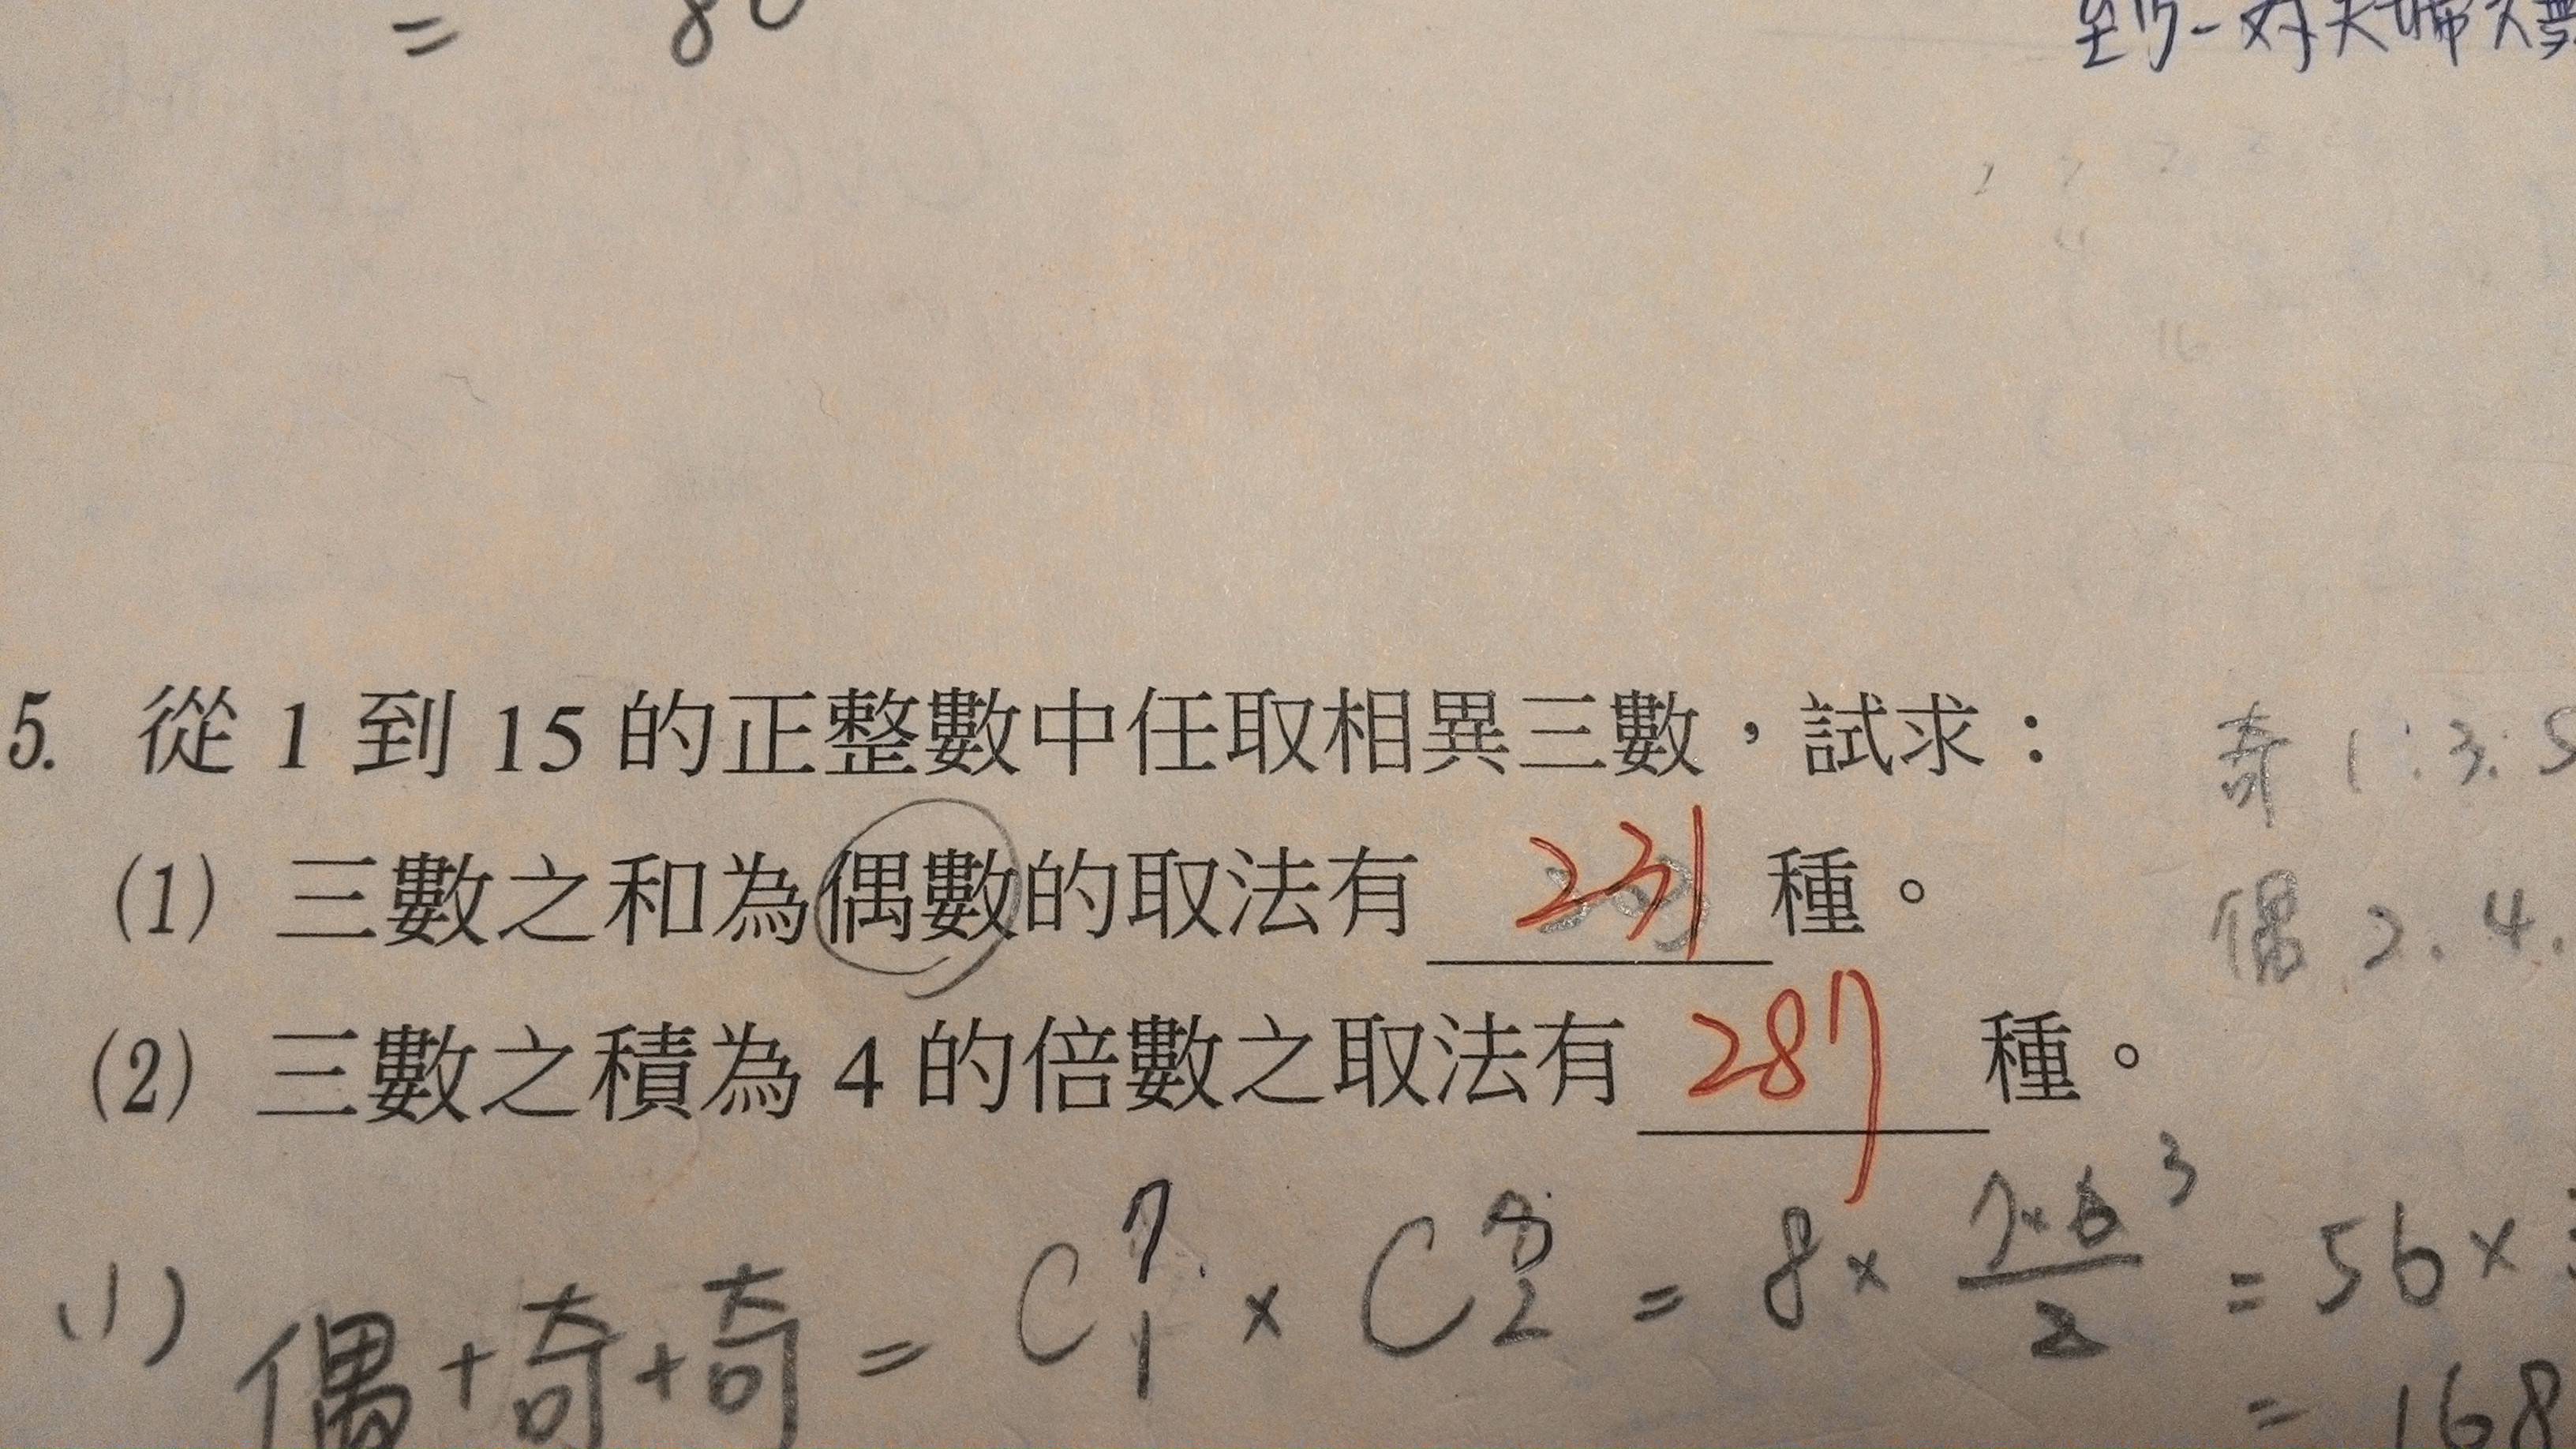 = 80
至少一對夫婦入選
5. 從 1 到 15 的正整數中任取相異三數，試求：
奇 1. 3. 5
(1) 三數之和為偶數的取法有 231 種。
偶 2. 4.
(2) 三數之積為 4 的倍數之取法有 287 種。
(1) 偶+奇+奇 = C⁷₁ × C⁸₂ = 8 × 7×6/2 3 = 56 ×
= 168